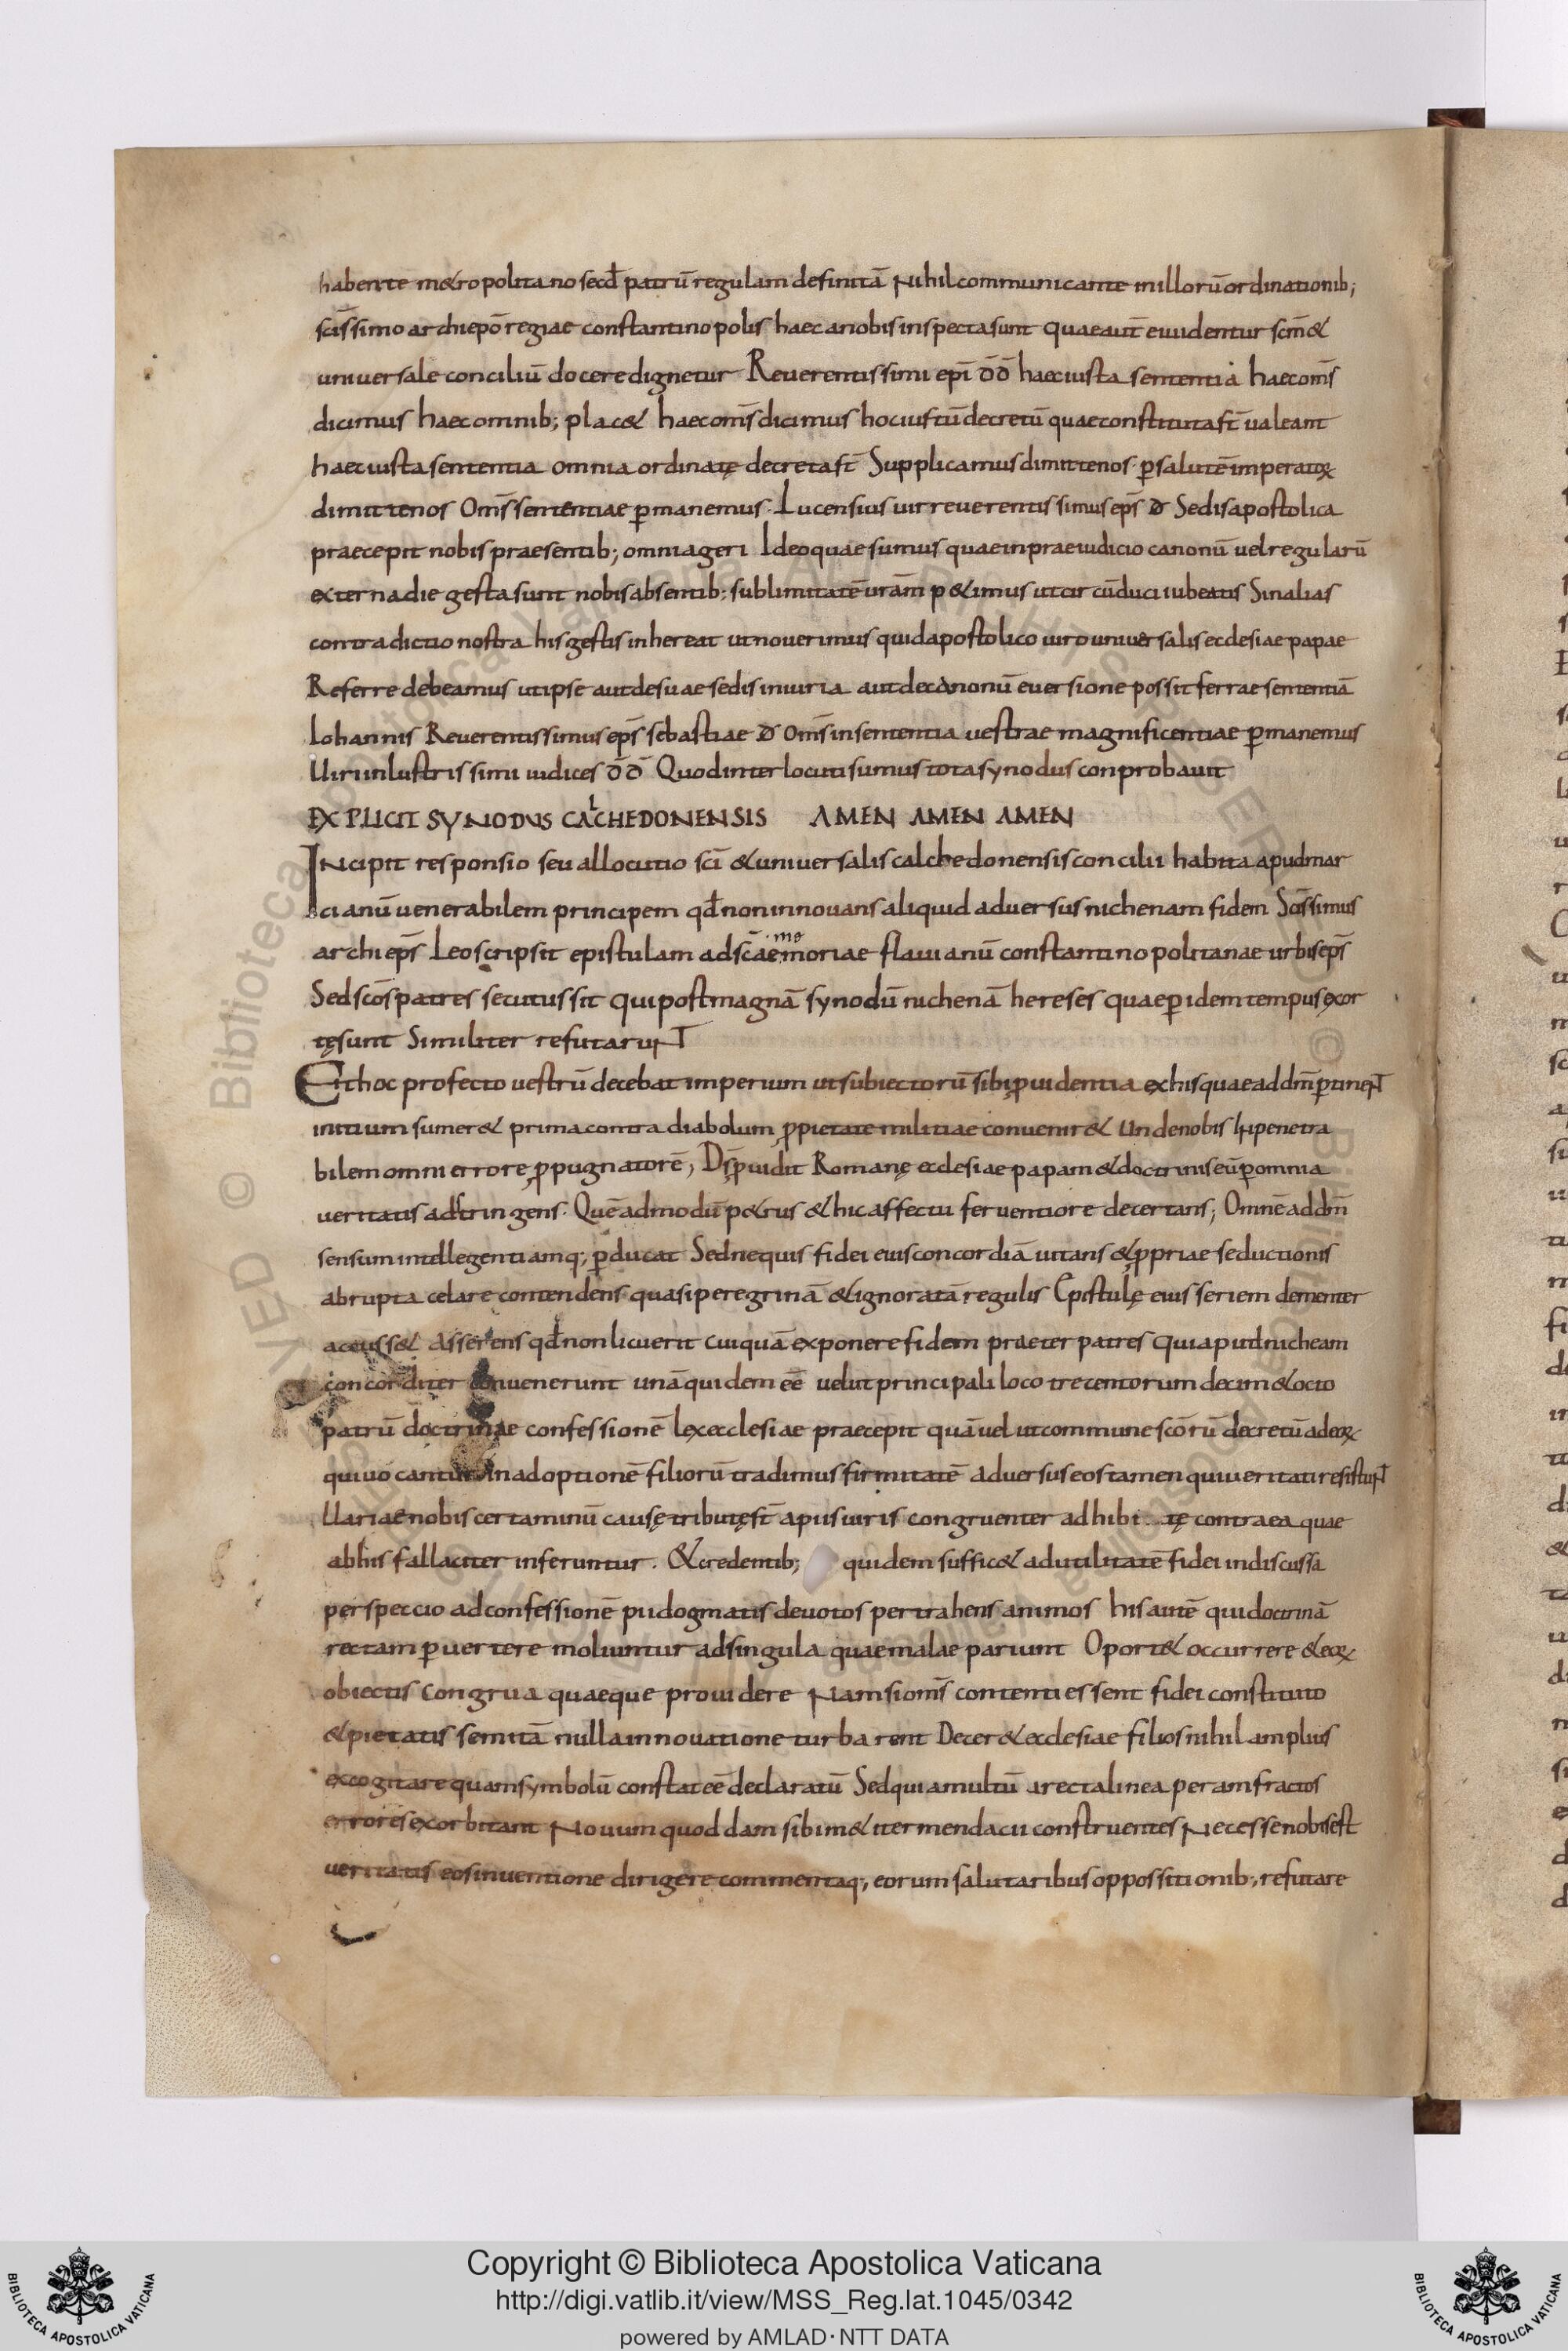 habente m&ropolitano secd̄ patrū regulam definitā Nihil communicante in illorū ordinationib;
scīssimo archiepō regiae constantinopolis haec a nobis inspecta sunt quae aut̄ ei uidentur scm̄ &
uniuersale conciliū docere dignetur Reuerentissimi epī d̄d̄ haec iusta sententia haec om̄s
dicimus haec omnib; plac& haec om̄s dicimus hoc iustū decretū quae constituta st̄ ualeant
haec iusta sententia omnia ordinatę decreta st̄ Supplicamus dimitte nos p̱ salutē imperatoꝝ
dimitte nos Om̄s sententiae p̱manemus. Lucensius uir reuerentissimus ep̄s đ Sedis apostolica
praecepit nobis praesentib; omnia geri Ideoquae sumus quae in praeiudicio canonū uel regularū
externa die gesta sunt nobis absentib; sublimitatē urām p&imus ut circūduci iubeatis Sin alias
contradictio nostra his gestis inhereat ut nouerimus quid apostolico uiro uniuersalis ecclesiae papae
Referre debeamus ut ipse aut de suae sedis iniuria aut de canonū euersione possit ferrae sententiā
Iohannis Reuerentissimus ep̄s sebastiae đ Om̄s in sententia uestrae magnificentiae p̱manemus
Uiri inlustrissimi iudices d̄d̄ Quod interlocuti sumus tota synodus conprobauit
EXPLICIT SYNODVS CALCHEDONENSIS AMEN AMEN AMEN
INcipit responsio seu allocutio scī & uniuersalis calchedonensis concilii habita apud mar
cianū uenerabilem principem qđ non innouans aliquid aduersus nichenam fidem Scīssimus
archiep̄s Leo scripsit epistulam ad scāe memoriae flauianū constantinopolitanae urbis ep̄s
Sed scōs patres secutus sit qui post magnā synodū nichenā hereses quae p̱ idem tempus exor
tę sunt Similiter refutaruNT
Et hoc profecto uestrū decebat imperium ut subiectorū sibi ꝓuidentia ex his quae ad dm̄ p̱tineNT
initium sumer& prima contra diabolum ꝓ pietate militiae conuenir& Unde nobis Inpenetra
bilem omni errore ꝓpugnatorē; DS̄ ꝓuidit Romanę ecclesiae papam & doctrinis eū p̱ omnia
ueritatis adstringens. Quēadmodū p&rus & hic affectu feruentiore decertans; Omnē ad dm̄
sensum intellegentiamq; p̱ducat Sed nequis fidei eius concordiā uitans & ꝓpriae seductionis
abrupta celare contendens quasi peregrinā & ignoratā regulis Epistulę eius seriem dementer
accuss& Asserens qđ non licuerit cuiquā exponere fidem praeter patres Qui apud nicheam
concorditer conuenerunt unā quidem eē uelut principali loco trecentorum decim & octo
patrū doctrinae confessionē lex ecclesiae praecepit quā uel ut commune scōrū decretū ad eoꝝ
qui uocantur in adoptionē filiorū tradimus firmitatē Aduersus eos tamen qui ueritati resistuNT
Uariae nobis certaminū causę tributę st̄ apiis uiris congruenter adhibitę contra ea quae
ab his fallaciter inferuntur. & credentib; quidem suffic& ad utilitatē fidei indiscussa
perspectio ad confessionē pii dogmatis deuotos pertrahens animos his autē qui doctrinā
rectam p̱uertere moliuntur ad singula quae malae pariunt Oport& occurrere & eoꝝ
obiectis congrua quaeque prouidere Nam si om̄s contenti essent fidei constituto
& pietatis semitā nulla innouatione turbarent Decer& ecclesiae filios nihil amplius
excogitare quam symbolū constat eē declaratū Sed quia multū a recta linea per amfractos
errores exorbitant Nouum quoddam sibim& iter mendacii construentes Necesse nobis est
ueritatis eos inuentione dirigere commentaq; eorum salutaribus oppossitionib; refutare
Copyright © Biblioteca Apostolica Vaticana
http://digi.vatlib.it/view/MSS_Reg.lat.1045/0342
powered by AMLAD·NTT DATA
BIBLIOTECA APOSTOLICA VATICANA
BIBLIOTECA APOSTOLICA VATICANA